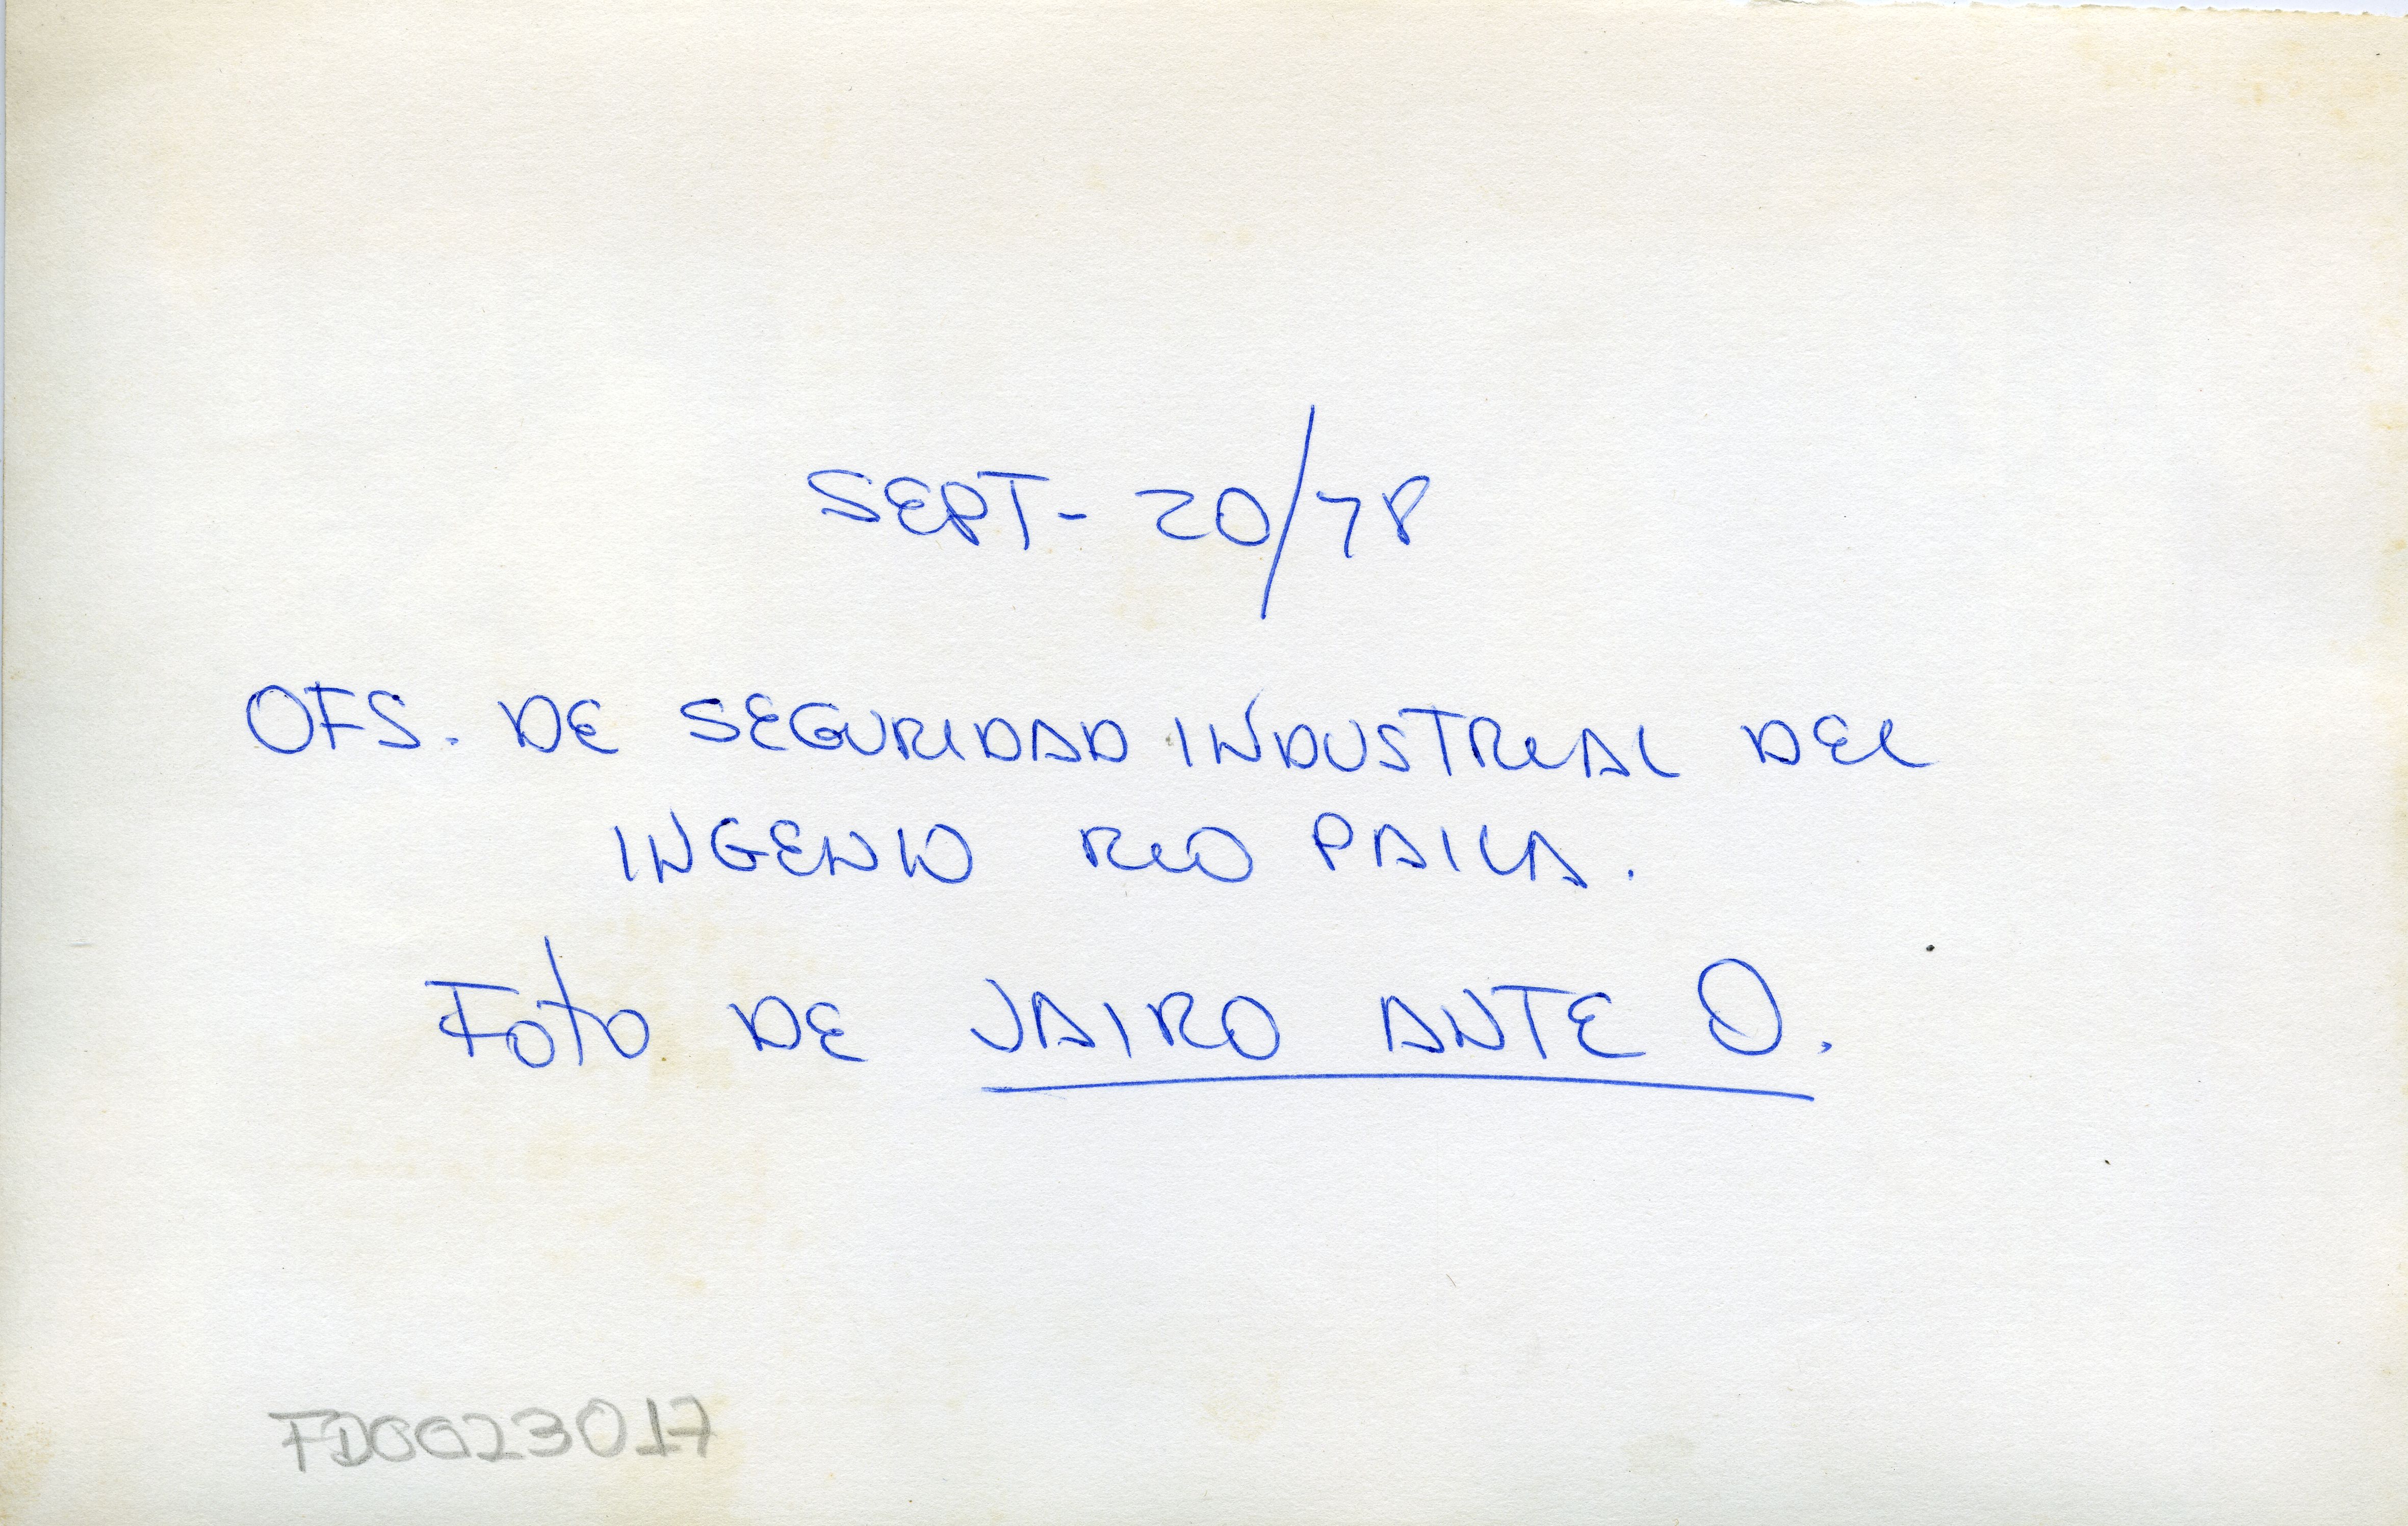 SEPT - 20/78
OFS. DE SEGURIDAD INDUSTRIAL DEL
INGENIO RIO PAILA.
Foto DE JAIRO ANTE O.
FD0023017